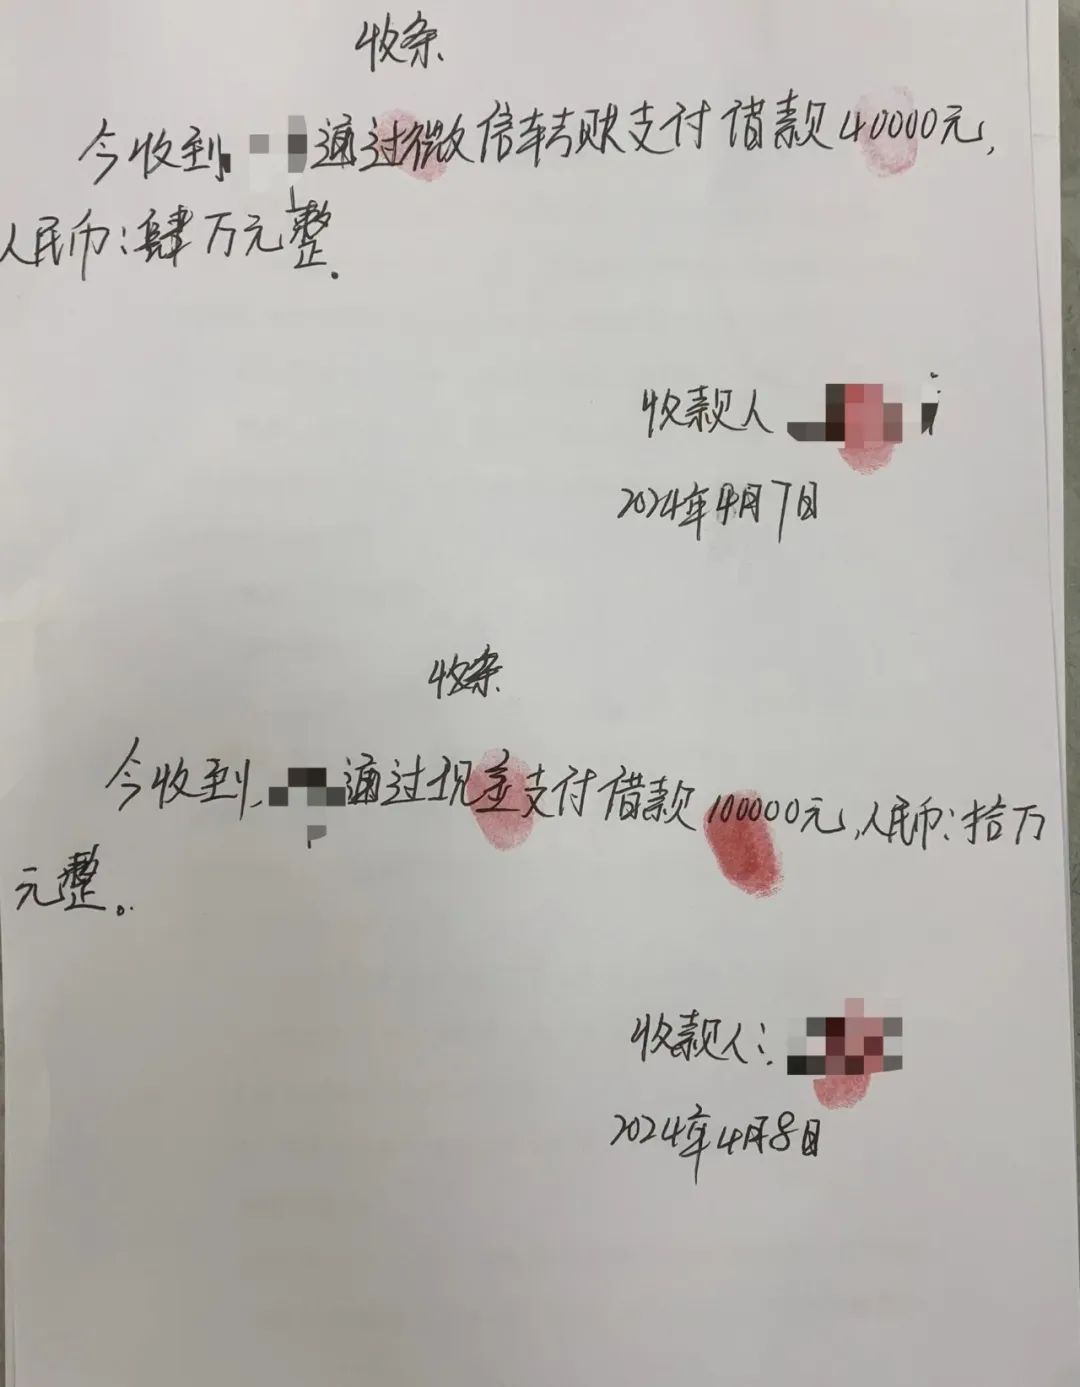 收条
今收到 通过微信转账支付借款40000元,
人民币:肆万元整.
收款人
2024年4月7日
收条
今收到, 通过现金支付借款100000元,人民币:拾万
元整。
收款人:
2024年4月8日